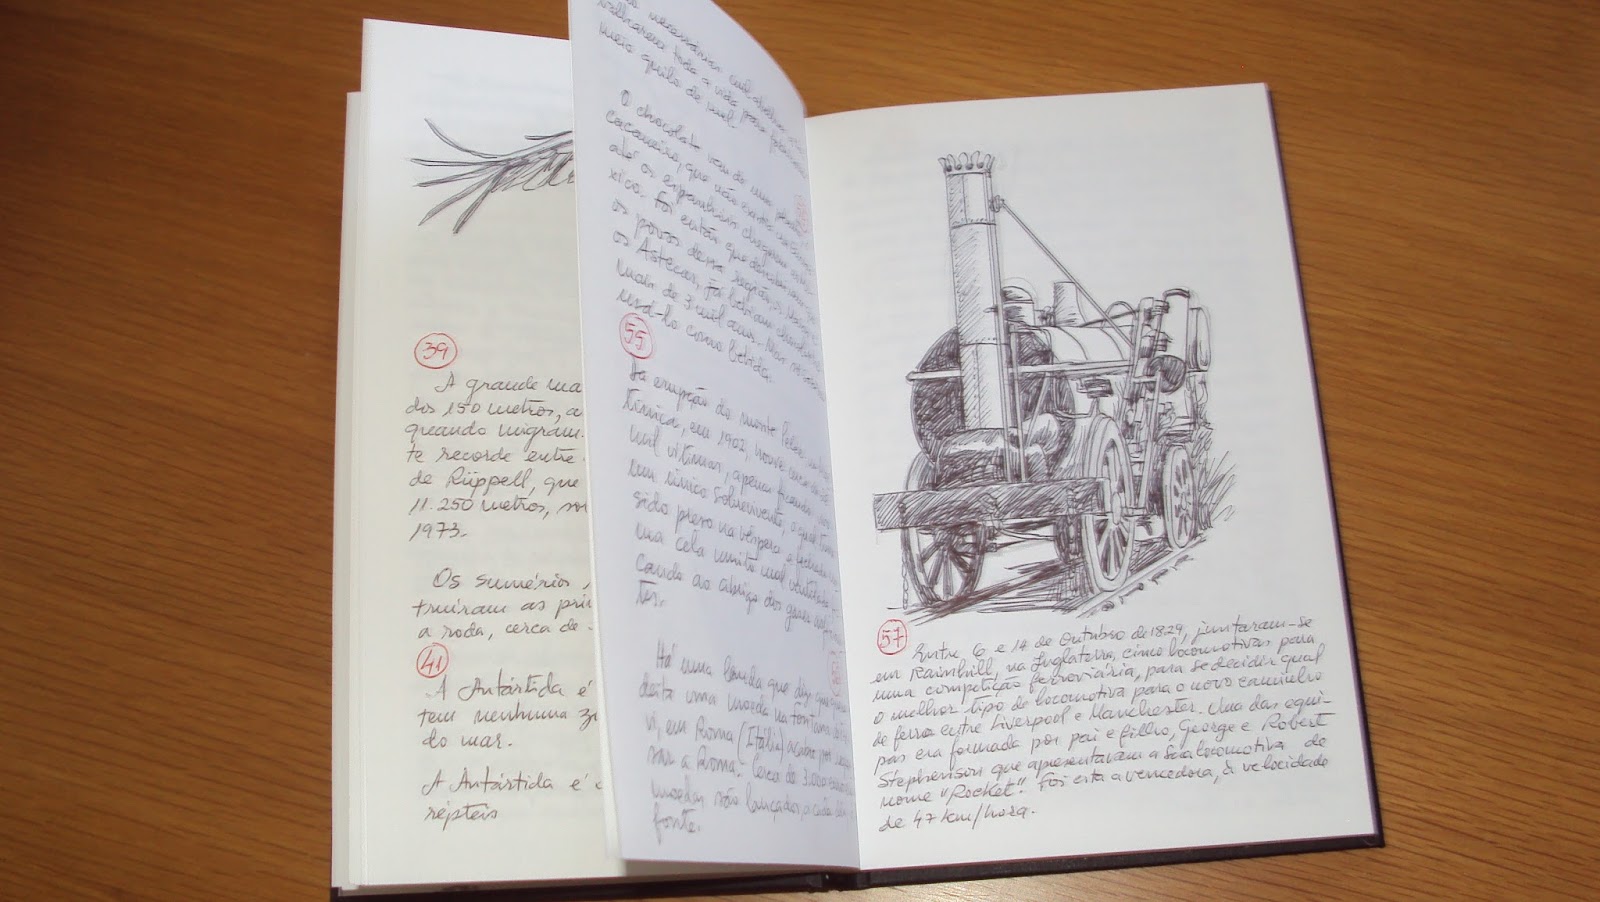 39
A grande ma
dos 150 metros, a
quando migram.
te recorde entre
de Rüppell, que
11.250 metros, so
1973.
Os sumérios
truíram as pri
a roda, cerca de
41
A Antártida é
tem nenhuma
do mar.
A Antártida é
répteis
toda a vida para
meio quilo de mel.
O chocolate vem de uma
cacaueiro, que não
até os espanhóis chegarem
xico. Foi então que
os povos dessa região,
os Astecas, já bebiam
mais de 3 mil anos. Mas
usá-lo como bebida.
55
Na erupção do monte Pelée, na
tinica, em 1902, houve cerca de
mil vítimas, apenas ficando
um único sobrevivente, o qual tinha
sido preso na véspera e fechado
uma cela muito mal ventilada
cando ao abrigo dos gases
tes.
Há uma lenda que diz que quem
deita uma moeda na fontana
vi, em Roma (Itália) acaba por
sar a Roma. Cerca de 3.000
moedas são lançadas a cada
fonte.
57
Entre 6 e 14 de Outubro de 1829, juntaram-se
em Rainhill, na Inglaterra, cinco locomotivas para
uma competição ferroviária, para se decidir qual
o melhor tipo de locomotiva para o novo caminho
de ferro entre Liverpool e Manchester. Uma das equi-
pas era formada por pai e filho, George e Robert
Stephenson que apresentavam a sua locomotiva de
nome "Rocket". Foi esta a vencedora, à velocidade
de 47 km/hora.